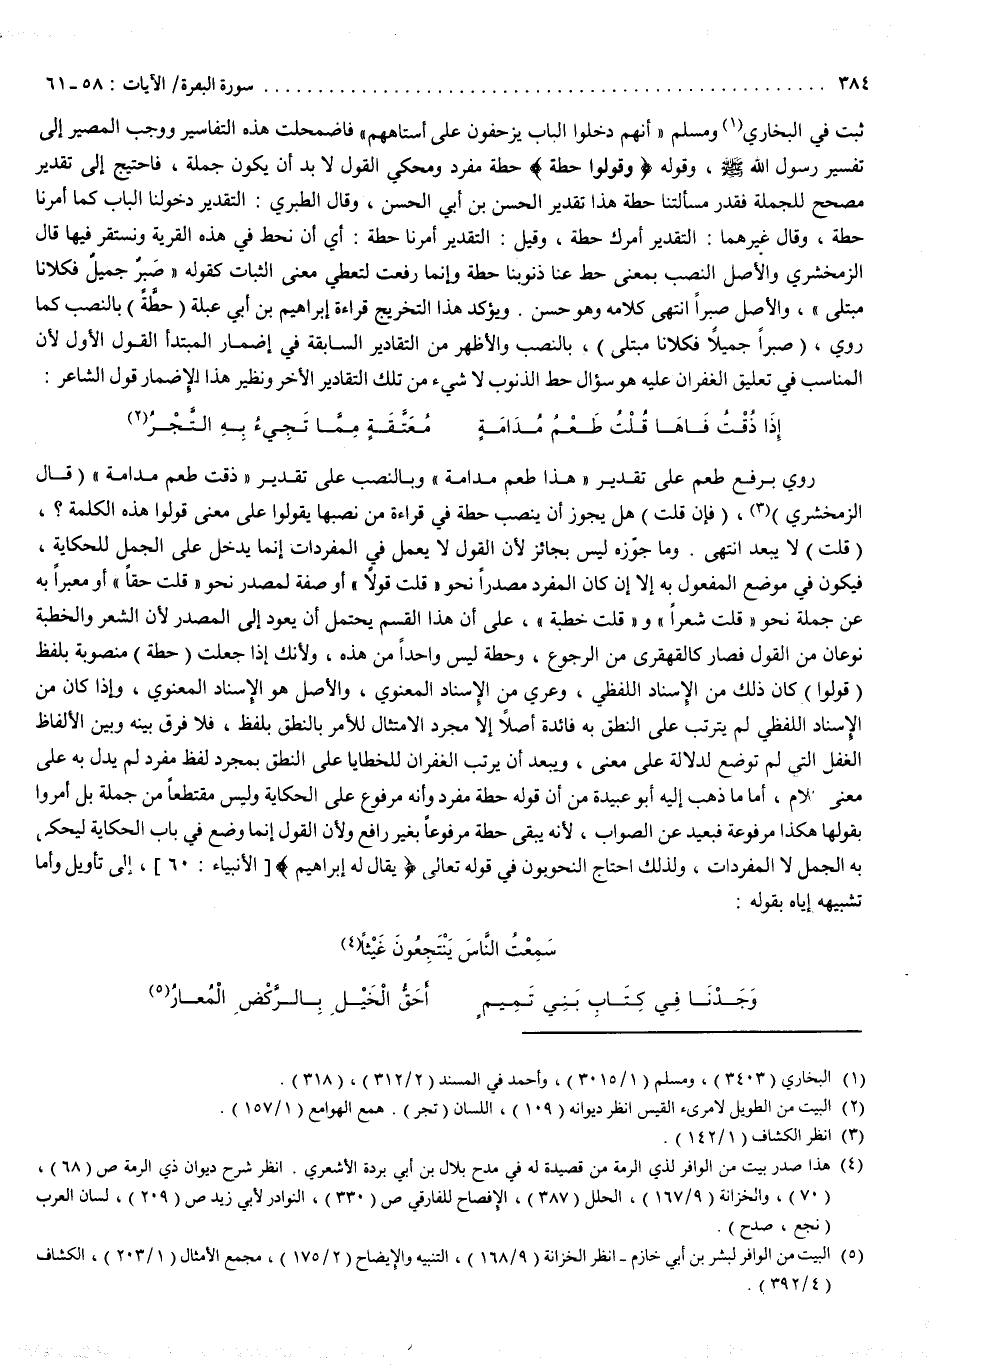 ٣٨٤ ........................................ سورة البقرة/ الآيات : ٥٨ ـ ٦١
ثبت في البخاري(١) ومسلم « أنهم دخلوا الباب يزحفون على أستاههم » فاضمحلت هذه التفاسير ووجب المصير إلى
تفسير رسول الله ﷺ ، وقوله ﴿ وقولوا حطة ﴾ حطة مفرد ومحكي القول لا بد أن يكون جملة ، فاحتيج إلى تقدير
مصحح للجملة فقدر مسألتنا حطة هذا تقدير الحسن بن أبي الحسن ، وقال الطبري : التقدير دخولنا الباب كما أمرنا
حطة ، وقال غيرهما : التقدير أمرك حطة ، وقيل : التقدير أمرنا حطة : أي أن نحط في هذه القرية ونستقر فيها قال
الزمخشري والأصل النصب بمعنى حط عنا ذنوبنا حطة وإنما رفعت لتعطي معنى الثبات كقوله « صَبرٌ جميلٌ فكلانا
مبتلى » ، والأصل صبراً انتهى كلامه وهو حسن . ويؤكد هذا التخريج قراءة إبراهيم بن أبي عبلة ( حطَّةً ) بالنصب كما
روي ، ( صبراً جميلاً فكلانا مبتلى ) ، بالنصب والأظهر من التقادير السابقة في إضمار المبتدأ القول الأول لأن
المناسب في تعليق الغفران عليه هو سؤال حط الذنوب لا شيء من تلك التقادير الأخر ونظير هذا الإضمار قول الشاعر :
إِذَا ذُقْتُ فَاهَا قُلْتُ طَعْمُ مُدَامَةٍ مُعَتَّقَةٍ مِمَّا تَجِيءُ بِهِ التَّجْرُ(٢)
روي برفع طعم على تقدير « هذا طعم مدامة » وبالنصب على تقدير « ذقت طعم مدامة » ( قال
الزمخشري )(٣) ، ( فإن قلت ) هل يجوز أن ينصب حطة في قراءة من نصبها يقولوا على معنى قولوا هذه الكلمة ؟ ،
( قلت ) لا يبعد انتهى . وما جوّزه ليس بجائز لأن القول لا يعمل في المفردات إنما يدخل على الجمل للحكاية ،
فيكون في موضع المفعول به إلا إن كان المفرد مصدراً نحو « قلت قولاً » أو صفة لمصدر نحو « قلت حقاً » أو معبراً به
عن جملة نحو « قلت شعراً » و« قلت خطبة » ، على أن هذا القسم يحتمل أن يعود إلى المصدر لأن الشعر والخطبة
نوعان من القول فصار كالقهقرى من الرجوع ، وحطة ليس واحداً من هذه ، ولأنك إذا جعلت ( حطة ) منصوبة بلفظ
( قولوا ) كان ذلك من الإسناد اللفظي ، وعري من الإسناد المعنوي ، والأصل هو الإسناد المعنوي ، وإذا كان من
الإسناد اللفظي لم يترتب على النطق به فائدة أصلاً إلا مجرد الامتثال للأمر بالنطق بلفظ ، فلا فرق بينه وبين الألفاظ
الغفل التي لم توضع لدلالة على معنى ، ويبعد أن يرتب الغفران للخطايا على النطق بمجرد لفظ مفرد لم يدل به على
معنى كلام ، أما ما ذهب إليه أبو عبيدة من أن قوله حطة مفرد وأنه مرفوع على الحكاية وليس مقتطعاً من جملة بل أمروا
بقولها هكذا مرفوعة فبعيد عن الصواب ، لأنه يبقى حطة مرفوعاً بغير رافع ولأن القول إنما وضع في باب الحكاية ليحكى
به الجمل لا المفردات ، ولذلك احتاج النحويون في قوله تعالى ﴿ يقال له إبراهيم ﴾ [ الأنبياء : ٦٠ ] ، إلى تأويل وأما
تشبيهه إياه بقوله :
سَمِعْتُ النَّاسَ يَنْتَجِعُونَ غَيْثاً(٤)
وَجَدْنَا فِي كِتَابِ بَنِي تَمِيمٍ أَحَقُّ الْخَيْلِ بِالرَّكْضِ الْمُعَارُ(٥)
(١) البخاري ( ٣٤٠٣ ) ، ومسلم ( ٣٠١٥/١ ) ، وأحمد في المسند ( ٣١٢/٢ ) ، ( ٣١٨ ) .
(٢) البيت من الطويل لامرىء القيس انظر ديوانه ( ١٠٩ ) ، اللسان ( تجر ) . همع الهوامع ( ١٥٧/١ ) .
(٣) انظر الكشاف ( ١٤٢/١ ) .
(٤) هذا صدر بيت من الوافر لذي الرمة من قصيدة له في مدح بلال بن أبي بردة الأشعري . انظر شرح ديوان ذي الرمة ص ( ٦٨ ) ،
( ٧٠ ) ، والخزانة ( ١٦٧/٩ ) ، الحلل ( ٣٨٧ ) ، الإفصاح للفارقي ص ( ٣٣٠ ) ، النوادر لأبي زيد ص ( ٢٠٩ ) ، لسان العرب
( نجع ، صدح ) .
(٥) البيت من الوافر لبشر بن أبي خازم ـ انظر الخزانة ( ١٦٨/٩ ) ، التنبيه والإيضاح ( ١٧٥/٢ ) ، مجمع الأمثال ( ٢٠٣/١ ) ، الكشاف
( ٣٩٢/٤ ) .